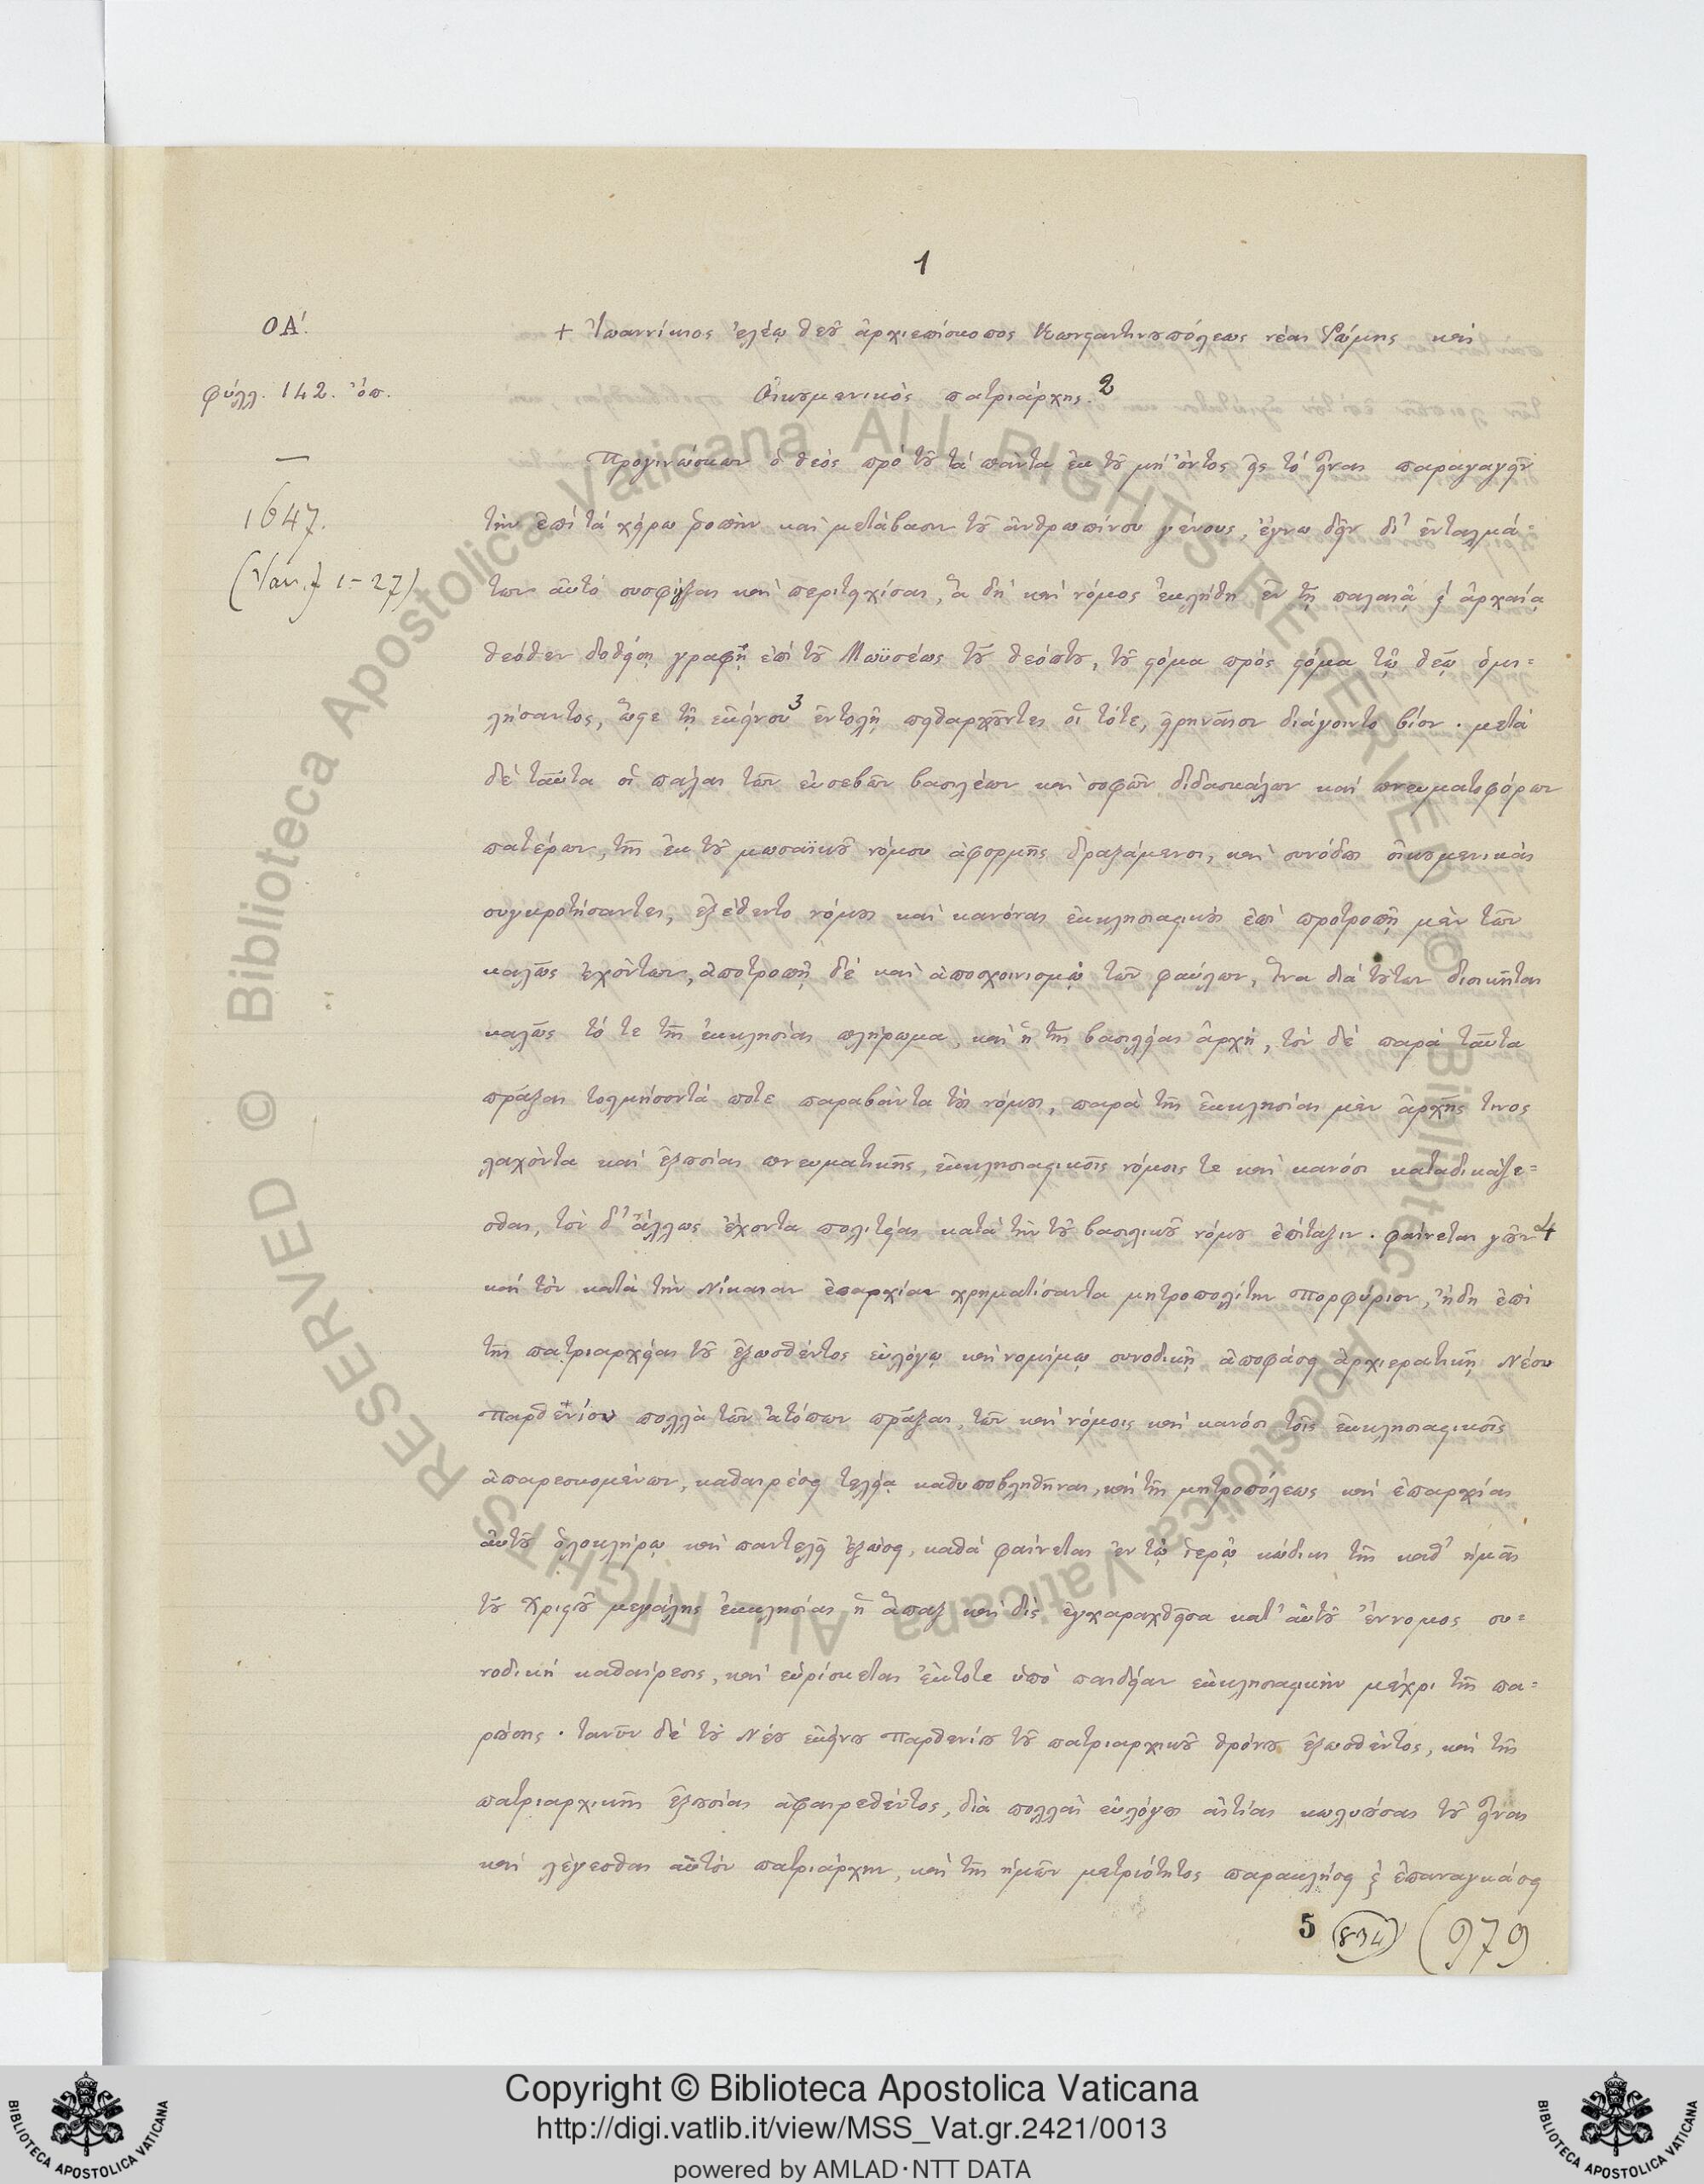 1
ΟΑ΄.
+ Ἰωαννίκιος ἐλέῳ θεοῦ ἀρχιεπίσκοπος Κωνσταντινουπόλεως νέας Ῥώμης καὶ
φύλλ. 142. ὄπ.
Οἰκουμενικὸς πατριάρχης. 2
—
1647.
(Ἰαν. 1–27)
Προγινώσκων ὁ θεὸς πρὸ τοῦ τὰ πάντα ἐκ τοῦ μὴ ὄντος εἰς τὸ εἶναι παραγαγεῖν
τὴν ἐπὶ τὰ χείρω ῥοπὴν καὶ μετάβασιν τοῦ ἀνθρωπίνου γένους, ἔγνω δεῖν δι' ἐνταλμά=
των αὐτὸ συσφίγξαι καὶ περιτειχίσαι, ἃ δὴ καὶ νόμος ἐκλήθη ἐν τῇ παλαιᾷ καὶ ἀρχαίᾳ
θεόθεν δοθείσῃ γραφῇ ἐπὶ τοῦ Μωϋσέως τοῦ θεόπτου, τοῦ στόμα πρὸς στόμα τῷ θεῷ ὁμι=
λήσαντος, ὥστε τῇ ἐκείνου 3 ἐντολῇ πειθαρχοῦντες οἱ τότε, εἰρηναῖον διάγοιντο βίον· μετὰ
δὲ ταῦτα οἱ πάλαι τῶν εὐσεβῶν βασιλέων καὶ σοφῶν διδασκάλων καὶ πνευματοφόρων
πατέρων, τῆς ἐκ τοῦ μωσαϊκοῦ νόμου ἀφορμῆς δραξάμενοι, καὶ συνόδους οἰκουμενικὰς
συγκροτήσαντες, ἐξέθεντο νόμους καὶ κανόνας ἐκκλησιαστικοὺς ἐπὶ προτροπῇ μὲν τῶν
καλῶς ἐχόντων, ἀποτροπῇ δὲ καὶ ἀποσχοινισμῷ τῶν φαύλων, ἵνα διὰ τούτων διοικῆται
καλῶς τό τε τῆς ἐκκλησίας πλήρωμα, καὶ ἡ τῆς βασιλείας ἀρχή, τὸν δὲ παρὰ ταῦτα
πρᾶξαι τολμήσοντά ποτε παραβάντα τοὺς νόμους, παρὰ τῆς ἐκκλησίας μὲν ἀρχῆς τινος
λαχόντα καὶ ἐξουσίας πνευματικῆς, ἐκκλησιαστικοῖς νόμοις τε καὶ κανόσι καταδικάζε=
σθαι, τὸν δ' ἄλλως ἔχοντα πολιτείας κατὰ τὴν τοῦ βασιλικοῦ νόμου ἐπίταξιν· φαίνεται γοῦν 4
καὶ τὸν κατὰ τὴν Νίκαιαν ἐπαρχίαν χρηματίσαντα μητροπολίτην Πορφύριον, ἤδη ἐπὶ
τῆς πατριαρχείας τοῦ ἐξωσθέντος εὐλόγῳ καὶ νομίμῳ συνοδικῇ ἀποφάσει ἀρχιερατικῇ Νέου
Παρθενίου πολλὰ τῶν ἀτόπων πρᾶξαι, τῶν καὶ νόμοις καὶ κανόσι τοῖς ἐκκλησιαστικοῖς
ἀπαρεσκομένων, καθαιρέσει τελείᾳ καθυποβληθῆναι, καὶ τῆς μητροπόλεως καὶ ἐπαρχίας
αὐτοῦ ὁλοκλήρῳ καὶ παντελεῖ ἐξώσει, καθὰ φαίνεται ἐν τῷ ἱερῷ κώδικι τῆς καθ' ἡμᾶς
τοῦ Χριστοῦ μεγάλης ἐκκλησίας ἡ ἅπαξ καὶ δὶς ἐγχαραχθεῖσα κατ' αὐτοῦ ἔννομος συ=
νοδικὴ καθαίρεσις, καὶ εὑρίσκεται ἔκτοτε ὑπὸ παιδείαν ἐκκλησιαστικὴν μέχρι τῆς πα=
ρούσης· τανῦν δὲ τοῦ Νέου ἐκείνου Παρθενίου τοῦ πατριαρχικοῦ θρόνου ἐξωσθέντος, καὶ τῆς
πατριαρχικῆς ἐξουσίας ἀφαιρεθέντος, διὰ πολλὰς εὐλόγους αἰτίας κωλυούσας τοῦ εἶναι
καὶ λέγεσθαι αὐτὸν πατριάρχην, καὶ τῆς ἡμῶν μετριότητος παρακλήσει καὶ ἐπαναγκάσει
5 (894) (979
Copyright © Biblioteca Apostolica Vaticana
http://digi.vatlib.it/view/MSS_Vat.gr.2421/0013
powered by AMLAD·NTT DATA
BIBLIOTECA APOSTOLICA VATICANA
BIBLIOTECA APOSTOLICA VATICANA
© Biblioteca Apostolica Vaticana ALL RIGHTS RESERVED
© Biblioteca Apostolica Vaticana ALL RIGHTS RESERVED